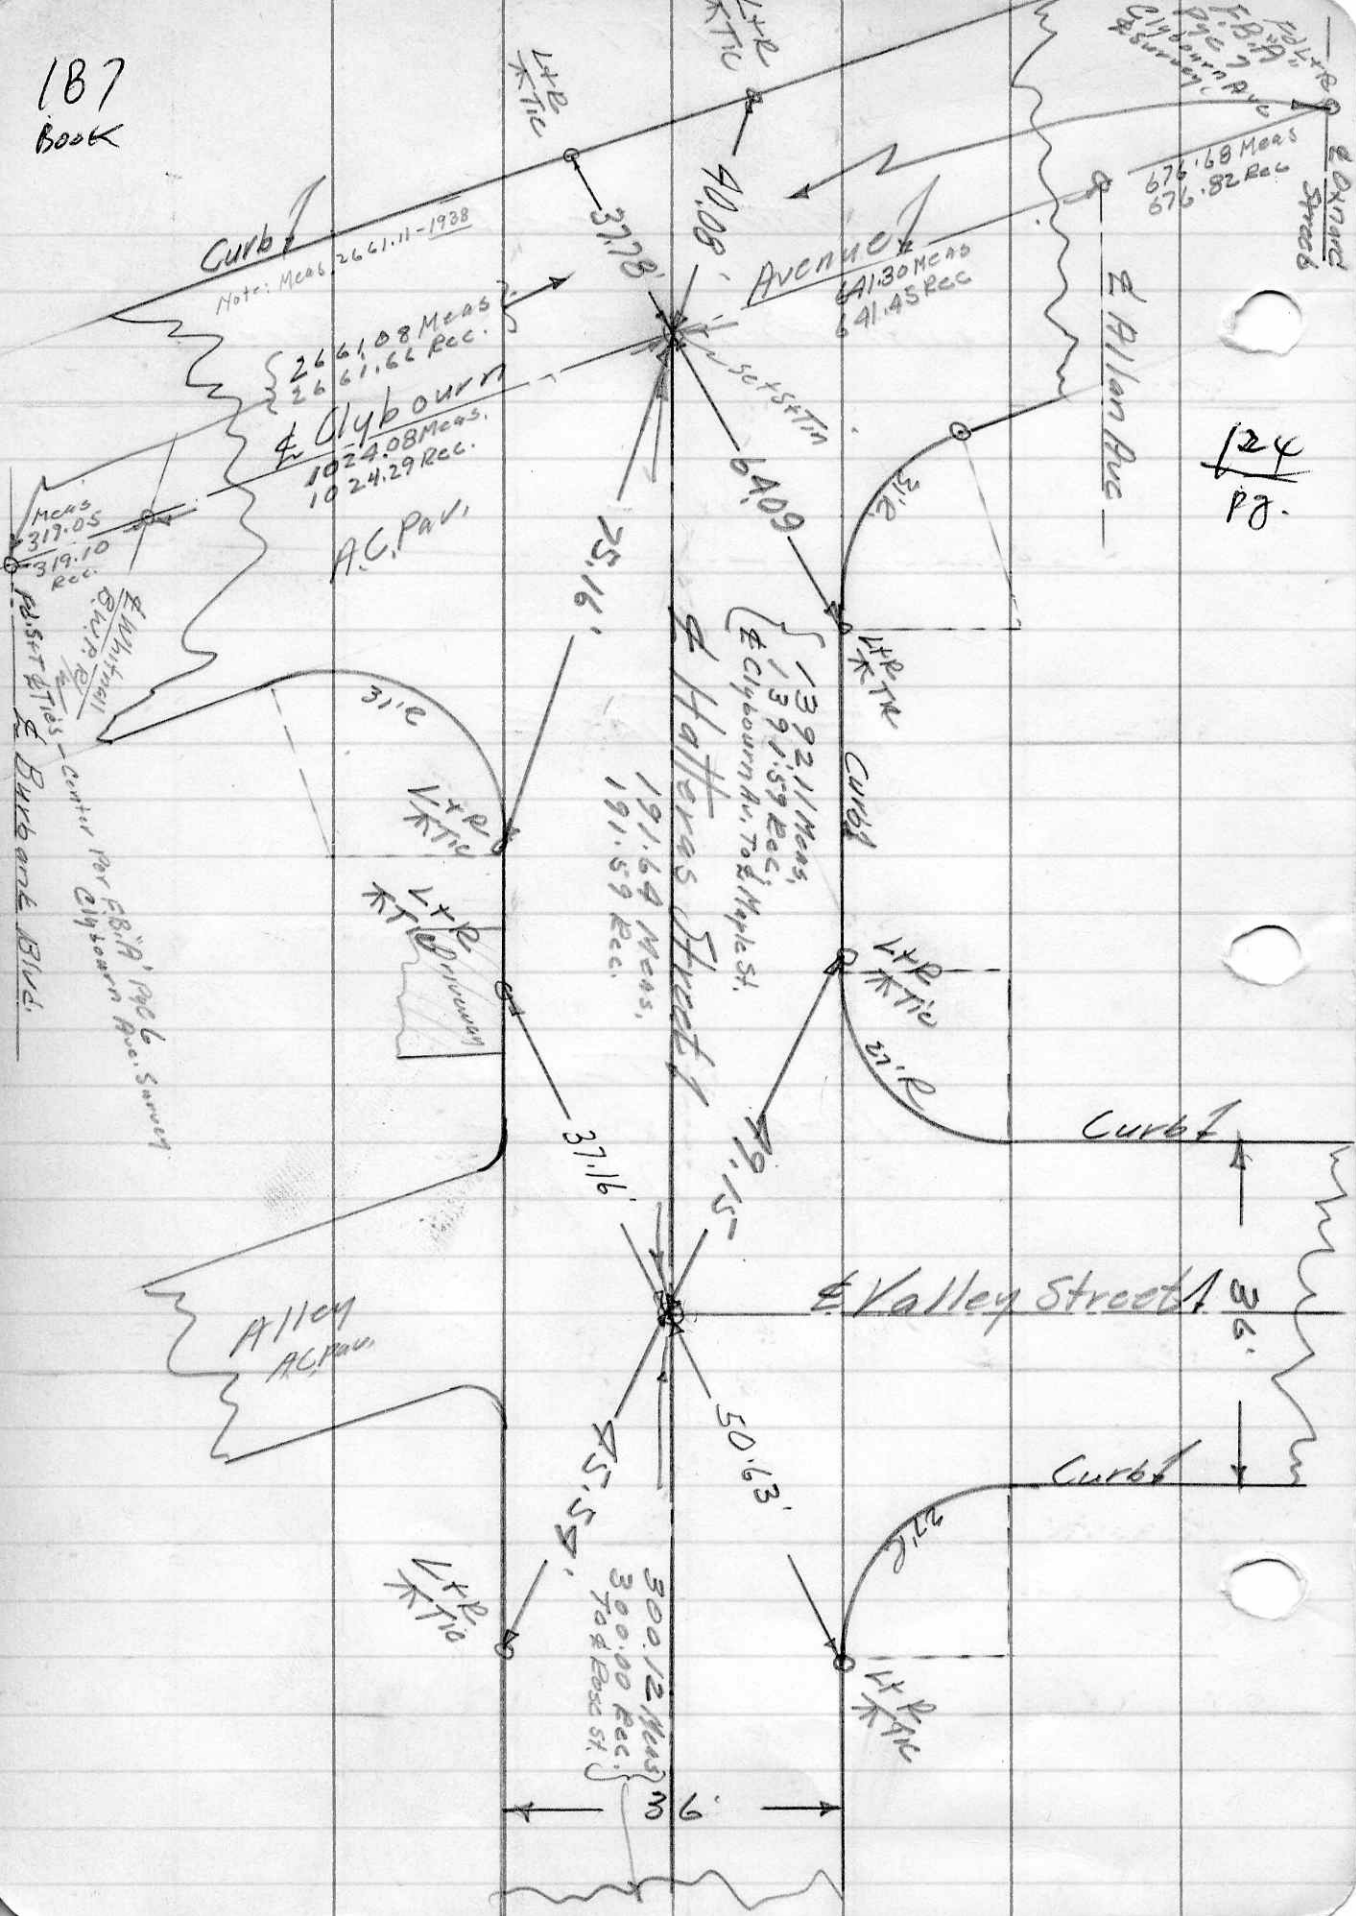 187
BOOK
124
pg.
L+R
TIC
L+R
TIC
Fd L+R
F.B."A"
Pge 7
Clybourn Ave
℄ Survey.
℄ Oxnard
Street
676.68 Meas
676.82 Rec
Curb
Note: Meas. 2661.11-1938
37.78'
40.08'
Avenue
641.30 Meas
641.45 Rec
℄ Allan Ave
2661.08 Meas
2661.66 Rec.
℄ Clybourn
1024.08 Meas.
1024.29 Rec.
A.C. Pav.
Set S+Tin
64.09
31'R
Meas
319.05
319.10
Rec.
℄ Whitnall
Fd. S+T & Ties - Center Per F.B."A" Pge 6
Clybourn Ave. Survey
℄ Burbank Blvd.
75.16'
31'R
L+R
TIC
L+R
TIC
Curb
1392.11 Meas.
1391.59 Rec.
℄ Clybourn Av. To ℄ Maple St.
℄ Hatteras Street
191.64 Meas.
191.59 Rec.
L+R
TIC
Driveway
L+R
TIC
27'R
37.16'
49.15
Curb
36'
℄ Valley Street
Alley
A.C. Pav.
45.54'
50.63'
Curb
27'R
L+R
TIC
L+R
TIC
300.12 Meas
300.00 Rec.
To ℄ Rose St.
36'